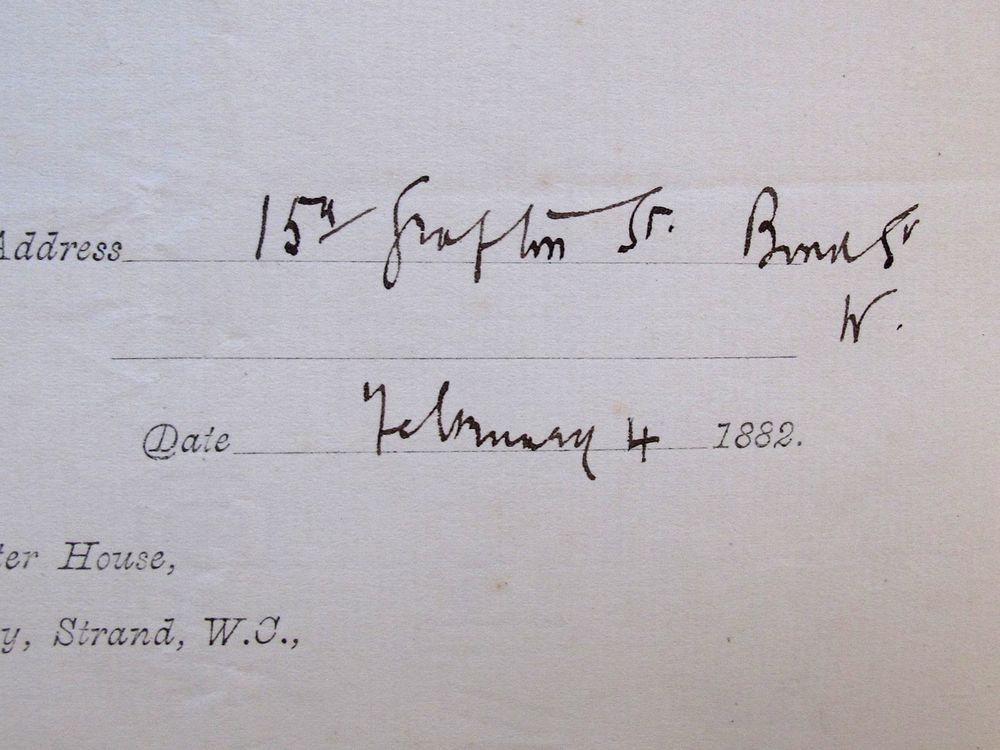 Address 15a Grafton St. Bond St
W.
Date February 4 1882.
ter House,
y, Strand, W.C.,